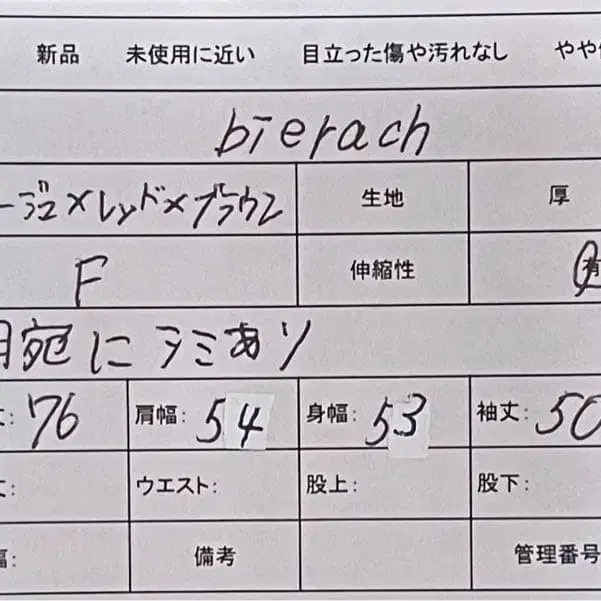 新品 未使用に近い 目立った傷や汚れなし やや
bierach
ージュ×レッド×ブラウン 生地 厚
F 伸縮性 有
にシミあり
丈: 76 肩幅: 54 身幅: 53 袖丈: 50
丈: ウエスト: 股上: 股下:
幅: 備考 管理番号